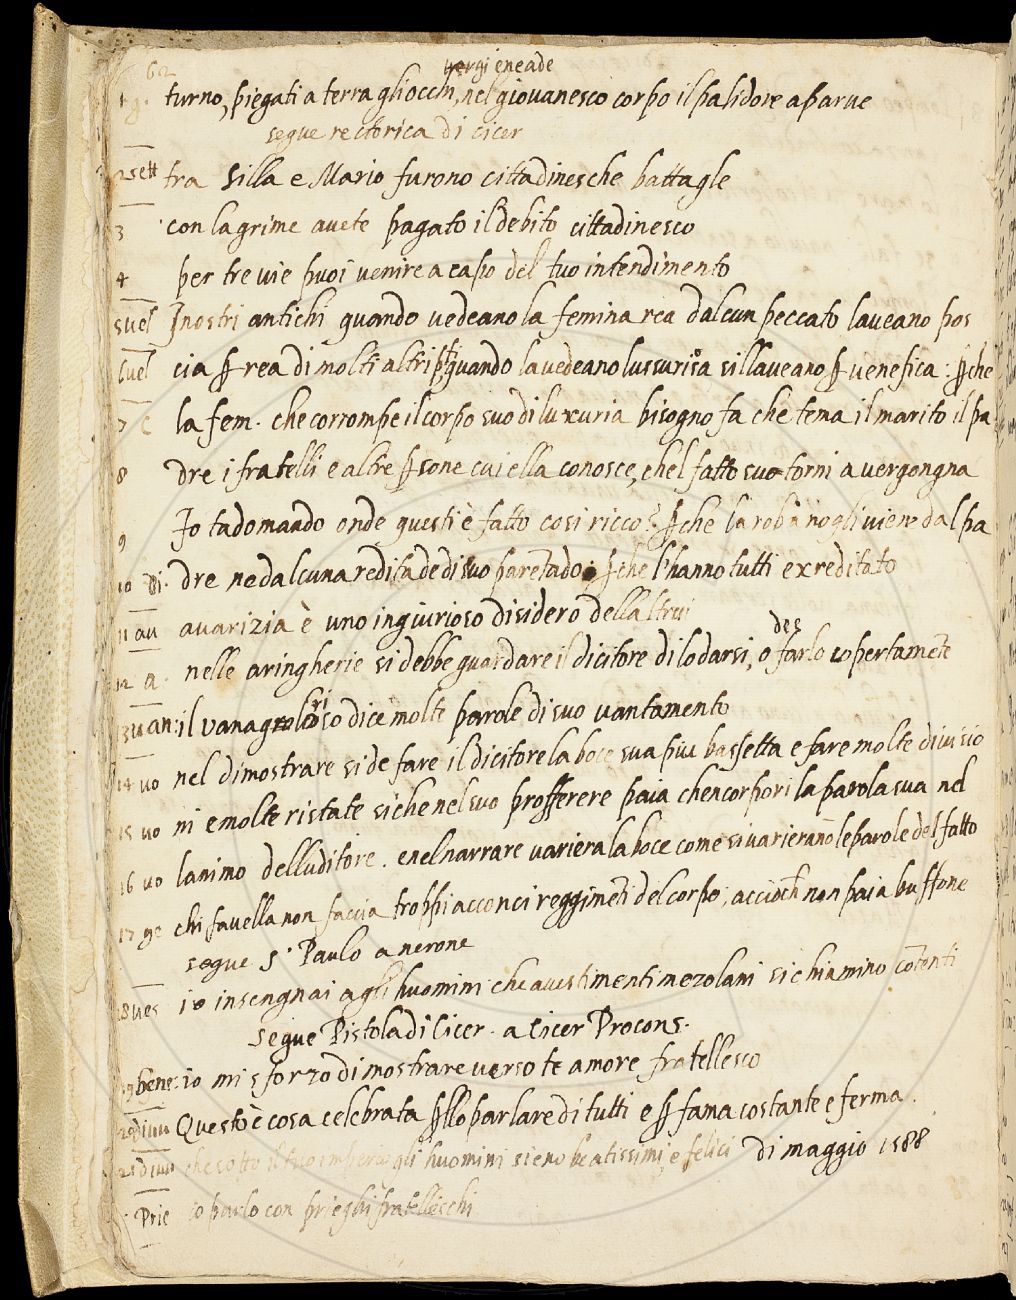 62
vergi eneade
turno, piegati a terra gliocchi, nel giovanesco corpo il palidore aparve
segue rectorica di cicer
2 sett tra Silla e Mario furono cittadinesche battagle
3 con lagrime avete pagato il debito cittadinesco
4 per tre vie puoi venire a capo del tuo intendimento
5 vel I nostri antichi quando vedeano la femina rea dalcun peccato laveano pos
vel cia p rea di molti altri quando la vedeano lussuriosa, sillaveano p venefica: pche
7 la fem. che corrompe il corpo suo di luxuria bisogno fa che tema il marito il pa
8 dre i fratelli e altre psone cui ella conosce, chel fatto suo torni a vergongna
9 Io tadomando onde questi è fatto cosi ricco? pche la roba nogli viene dal pa
10 dre ne dalcuna redita de di suo paretado: pche l'hanno tutti exreditato
11 au avarizia è uno ingiurioso disidero dellaltrui
des
12 a. nelle aringherie si debbe guardare il dicitore di lodarsi, o farlo copertamēte
ri
13 van: il vanagroloso dice molte parole di suo vantamento
14 vo nel dimostrare si de fare il dicitore la boce sua piu bassetta e fare molte divisio
15 vo ni e molte ristate siche nel suo profferere paia chencorpori la parola sua nel
16 vo lanimo delluditore. e nel narrare variera la boce come si varierāno le parole del fatto
17 ge chi favella non faccia troppi acconci reggimēti del corpo, acciochē non paia buffone
segue S. Paulo a nerone
18 ves io insengnai agli huomini che a vestimenti mezolani si chinmino cōtenti
segue Pistola di Cicer. a Cicer Procons.
19 bene: io mi sforzo di mostrare verso te amore fratellesco
20 divu Questo è cosa celebrata pllo parlare di tutti e p fama costante e ferma.
21 divu che sotto il tuo impera gli huomini sieno beatissimi, e felici di maggio 1588
Prie io parlo con prieghi fratelleschi